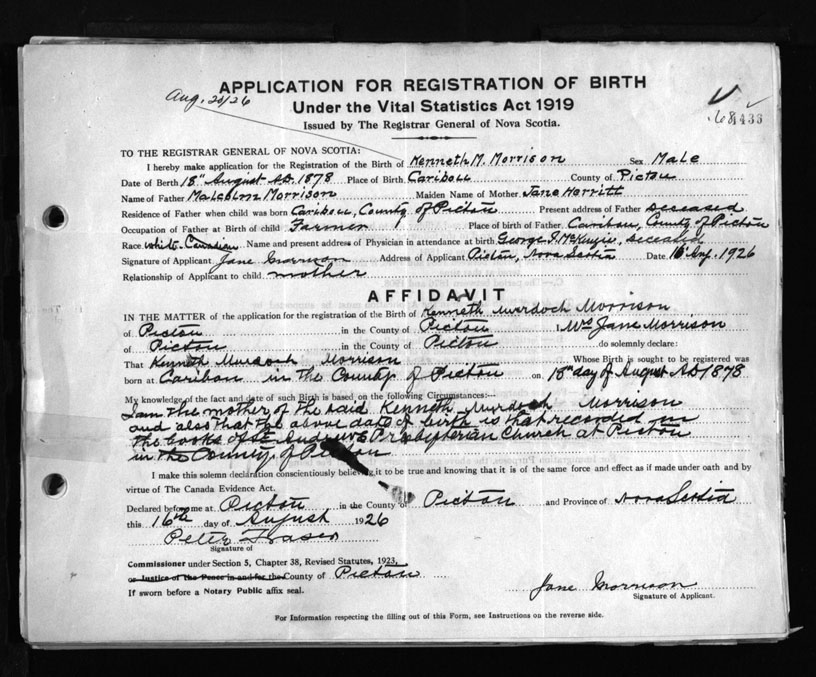 APPLICATION FOR REGISTRATION OF BIRTH
Aug. 20/26
Under the Vital Statistics Act 1919
Issued by The Registrar General of Nova Scotia.
TO THE REGISTRAR GENERAL OF NOVA SCOTIA:
I hereby make application for the Registration of the Birth of Kenneth M. Morrison Sex Male
Date of Birth 18th August A.D. 1878 Place of Birth Caribou County of Pictou
Name of Father Malcolm Morrison Maiden Name of Mother Jane Herritt
Residence of Father when child was born Caribou, County of Pictou Present address of Father deceased
Occupation of Father at Birth of child Farmer Place of birth of Father Caribou, County of Pictou
Race White-Canadian Name and present address of Physician in attendance at birth George I. McKenzie, deceased
Signature of Applicant Jane Morrison Address of Applicant Pictou, Nova Scotia Date 16 Aug. 1926
Relationship of Applicant to child mother
AFFIDAVIT
IN THE MATTER of the application for the registration of the Birth of Kenneth Murdoch Morrison
of Pictou in the County of Pictou I, Mrs Jane Morrison
of Pictou in the County of Pictou do solemnly declare:
That Kenneth Murdoch Morrison Whose Birth is sought to be registered was
born at Caribou in the County of Pictou on 18th day of August A.D. 1878
My knowledge of the fact and date of such Birth is based on the following Circumstances:—
I am the mother of the said Kenneth Murdoch Morrison
and also that the above date of birth is that recorded in
the books of St Andrews Presbyterian Church at Pictou
in the County of Pictou
I make this solemn declaration conscientiously believing it to be true and knowing that it is of the same force and effect as if made under oath and by
virtue of The Canada Evidence Act.
Declared before me at Pictou in the County of Pictou and Province of Nova Scotia
this 16th day of August 1926
Peter Fraser
Signature of
Commissioner under Section 5, Chapter 38, Revised Statutes, 1923,
or Justice of the Peace in and for the County of Pictou
If sworn before a Notary Public affix seal.
Jane Morrison
Signature of Applicant.
For Information respecting the filling out of this Form, see Instructions on the reverse side.